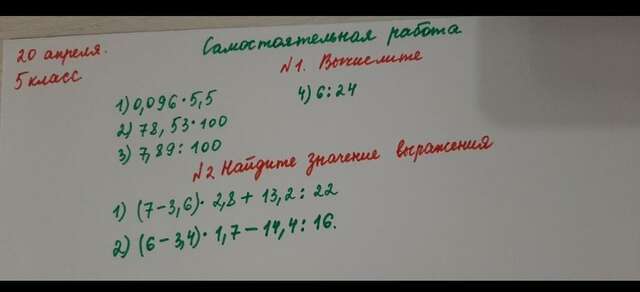 20 апреля.
5 класс
Самостоятельная работа
№1. Вычислите
1) 0,096·5,5
2) 78,53·100
3) 7,89:100
4) 6:24
№2 Найдите значение выражения
1) (7-3,6)·2,8+13,2:22
2) (6-3,4)·1,7-14,4:16.